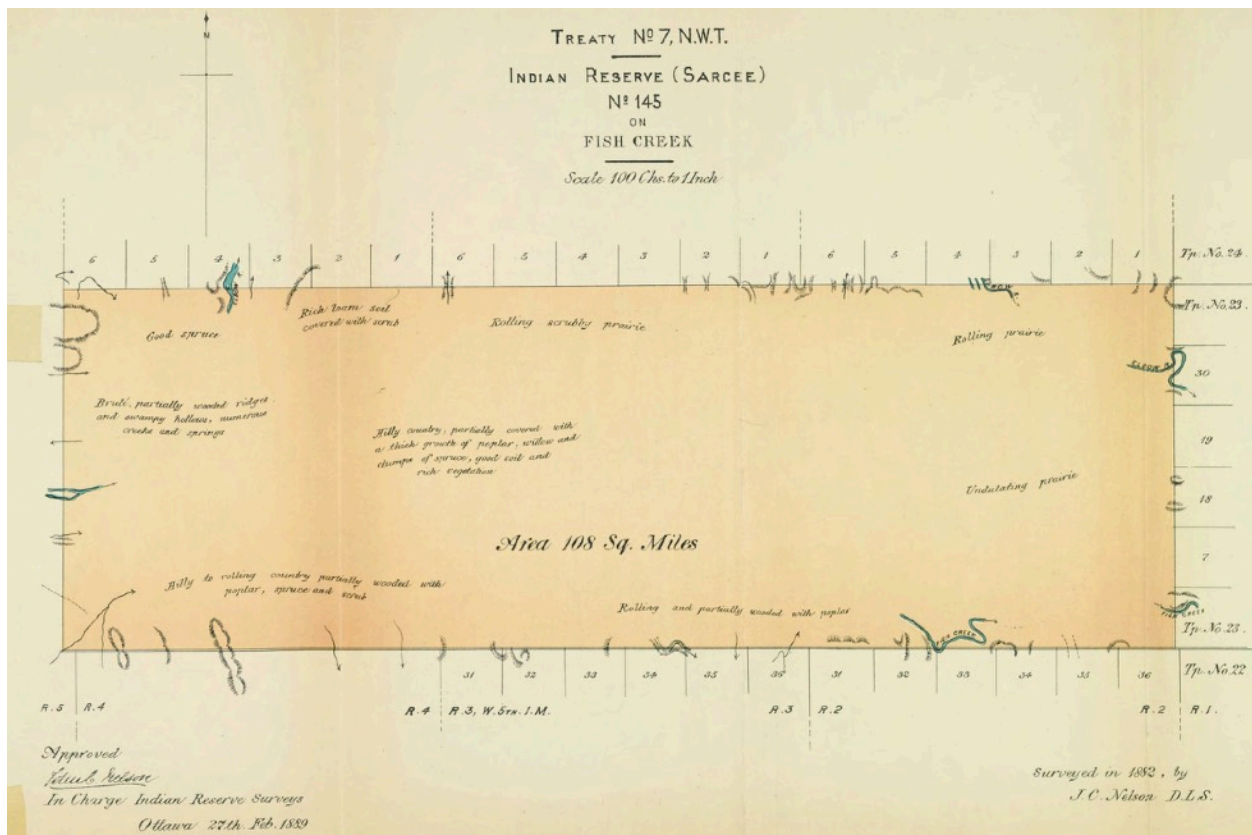 N
TREATY Nº 7, N.W.T.
INDIAN RESERVE (SARCEE)
Nº 145
ON
FISH CREEK
Scale 100 Chs. to 1 Inch
6 5 4 3 2 1 6 5 4 3 2 1 6 5 4 3 2 1 Tp. No. 24
Tp. No. 23
Good spruce
Rich loam soil
covered with scrub
Rolling scrubby prairie
Rolling prairie
ELBOW R.
30
Brulé, partially wooded ridges
and swampy hollows, numerous
creeks and springs
Hilly country, partially covered with
a thick growth of poplar, willow and
clumps of spruce, good soil and
rich vegetation
19
Undulating prairie
18
Area 108 Sq. Miles
7
Hilly to rolling country partially wooded with
poplar, spruce and scrub
Rolling and partially wooded with poplar
FISH CREEK
FISH CREEK
Tp. No. 23
31 32 33 34 35 36 31 32 33 34 35 36 Tp. No. 22
R.5 R.4 R.4 R.3, W. 5TH. I.M. R.3 R.2 R.2 R.1.
Approved
John C Nelson
In Charge Indian Reserve Surveys
Ottawa 27th. Feb. 1889
Surveyed in 1882, by
J.C. Nelson D.L.S.